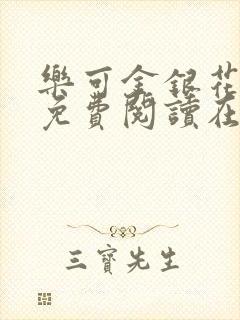 樂可金銀花
免費閱讀在
三寶先生